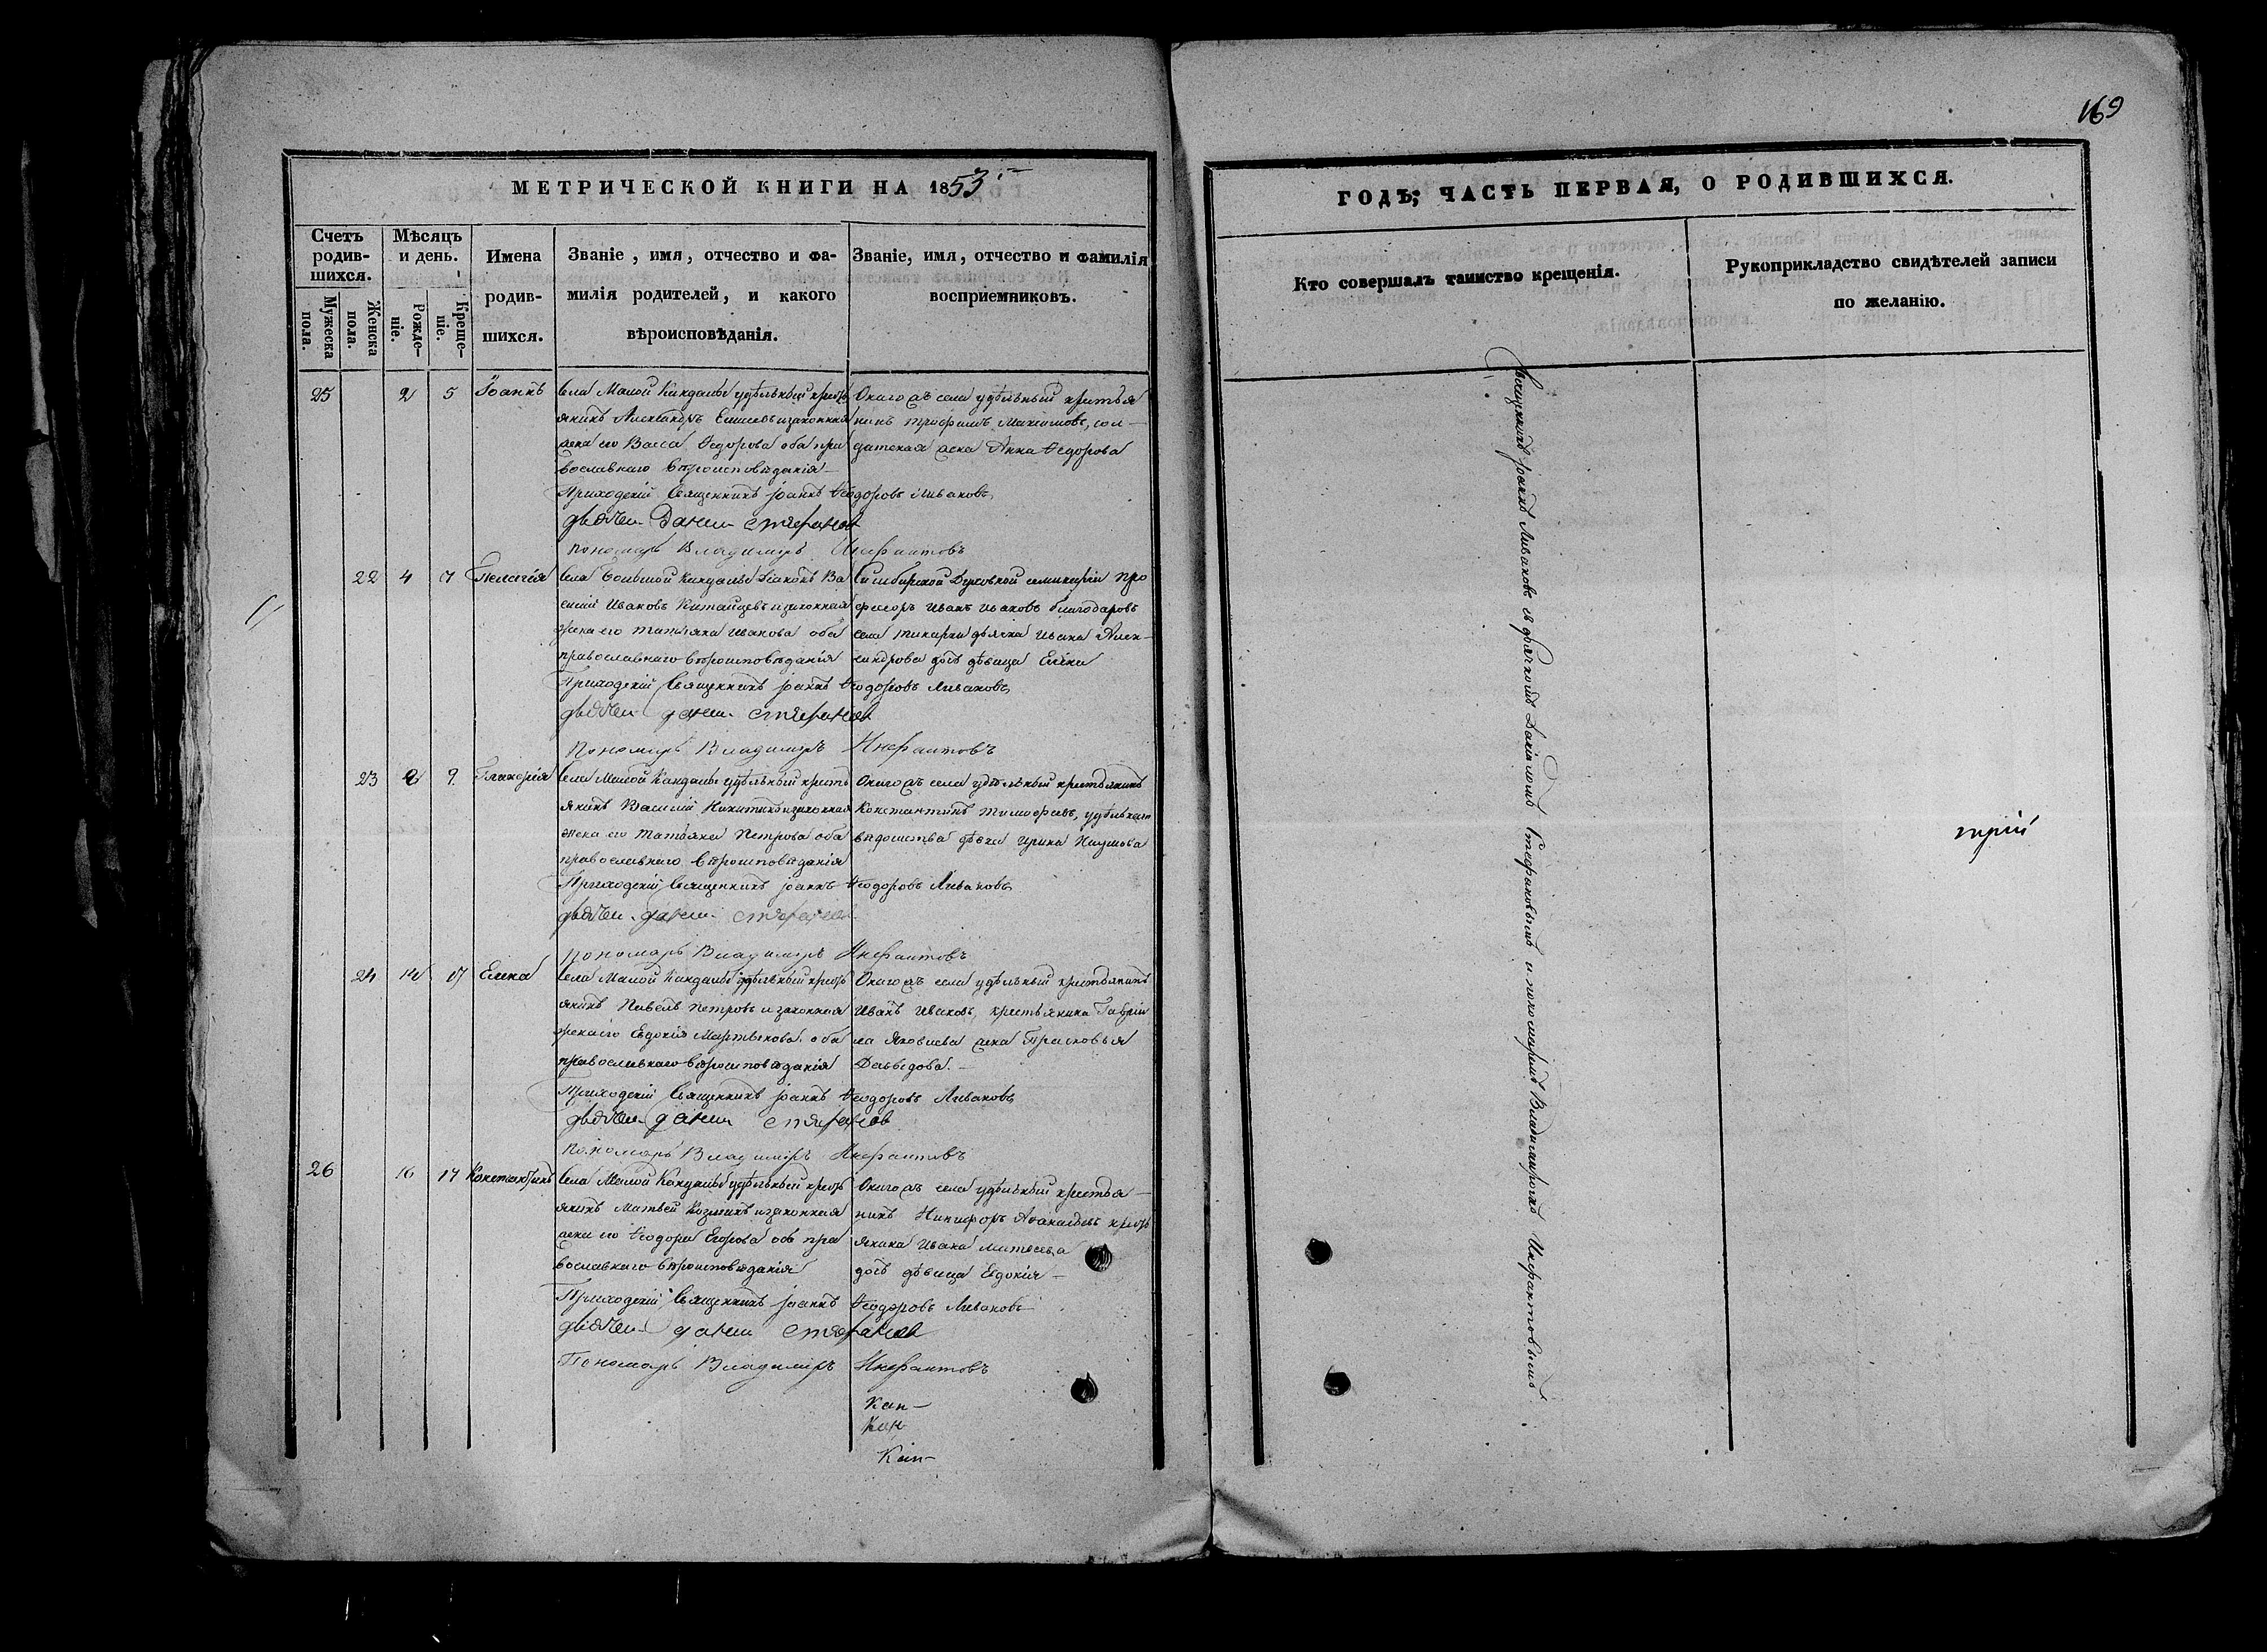 169
МЕТРИЧЕСКОЙ КНИГИ НА 1853
ГОДЪ; ЧАСТЬ ПЕРВАЯ, О РОДИВШИХСЯ.
Счетъ родив-шихся.
Мужеска пола.
Женска пола.
Мѣсяцъ и день.
Рожде-ніе.
Креще-ніе.
Имена родив-шихся.
Званіе, имя, отчество и фа-
милія родителей, и какого
вѣроисповѣданія.
Званіе, имя, отчество и фамилія
восприемниковъ.
Кто совершалъ таинство крещенія.
Рукоприкладство свидѣтелей записи
по желанію.
25 2 5 Іоаннъ
Села Малой Кандалы удѣльный кресть
янинъ Александръ Елисеевъ и законная
жена его Васса Ѳедорова оба пра
вославнаго вѣроисповѣданія
Онаго жъ села удѣльный крестья
нинъ Трофимъ Максимовъ, сол-
датская жена Анна Ѳедорова
Приходскій Священникъ Іоаннъ Ѳеодоровъ Ливановъ
дьячекъ Данил Стефановъ
пономарь Владимиръ
22 4 7 Пелагія
Села Большой Кандалы Діаконъ Ва
силій Ивановъ Китайцевъ и законная
жена его Татьяна Иванова оба
православнаго вѣроисповѣданія
Симбирской Духовной семинаріи про
фесоръ Иванъ Ивановъ Благодаровъ
села дьячка Ивана Алек-
сандрова дочь дѣвица Елена
Приходскій Священникъ Іоаннъ Ѳеодоровъ Ливановъ
дьячекъ Данил Стефановъ
пономарь Владимиръ
23 9 Гликерія
Села Малой Кандалы удѣльный кресть
янинъ Василій Никитинъ и законная
жена его Татьяна Петрова оба
православнаго вѣроисповѣданія
Онаго жъ села удѣльный крестьянинъ
Константинъ Тимофеевъ, удѣльнаго
вѣдомства дѣвка Ирина Наумова
Приходскій Священникъ Іоаннъ Ѳеодоровъ Ливановъ
дьячекъ Данил Стефановъ
пономарь Владимиръ
24 Елена
Села Малой Кандалы удѣльный кресть
янинъ Павелъ Петровъ и законная
жена его Евдокія Мартынова оба
православнаго вѣроисповѣданія
Онаго жъ села удѣльный крестьянинъ
Иванъ Ивановъ, крестьянина Гаврі
ла Яковлева жена Прасковья
Давыдова.
Приходскій Священникъ Іоаннъ Ѳеодоровъ Ливановъ
дьячекъ Данил Стефановъ
пономарь Владимиръ
26 16 17 Константинъ
Села Малой Кандалы удѣльный кресть
янинъ Матвей Козминъ и законная
жена его Ѳеодора Егорова оба пра
вославнаго вѣроисповѣданія
Онаго жъ села удѣльный крестья-
нинъ Никифоръ Аѳанасьевъ кресть
янина Ивана Матвеева
дочь дѣвица Евдокія
Приходскій Священникъ Іоаннъ Ѳеодоровъ Ливановъ
дьячекъ Данил Стефановъ
Пономарь Владимиръ
Кан-
Кан
Кан-
Священникъ Іоаннъ Ливановъ съ дьячкомъ Даніиломъ Стефановымъ и пономаремъ Владимиромъ